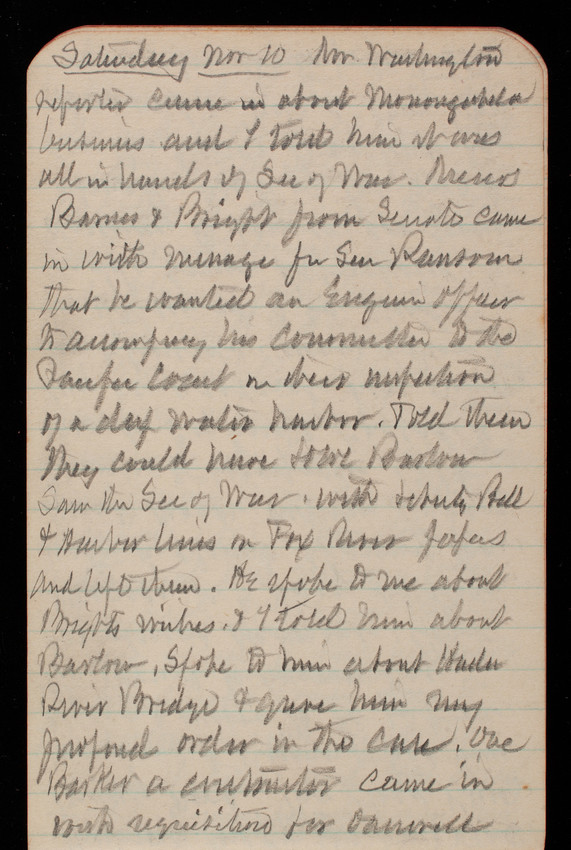 Saturday Nov 10 Mr. Washington
reporter came in about Monongahela
business and I told him it was
all in hands of Sec of War. Messrs
Barnes & Bright from Senate came
in with message for Sen Ransom
that he wanted an Engineer Officer
to accompany his Committee to the
Pacific Coast on their inspection
of a deep water harbor. Told them
they could have Barlow
Saw the Sec of War with Bill
& Harbor lines on Fox River papers
and left them. He spoke to me about
Brights wishes. & I told him about
Barlow, Spoke to him about
River Bridge & gave him my
proposed order in the case. One
Barker a contractor came in
with requisition for